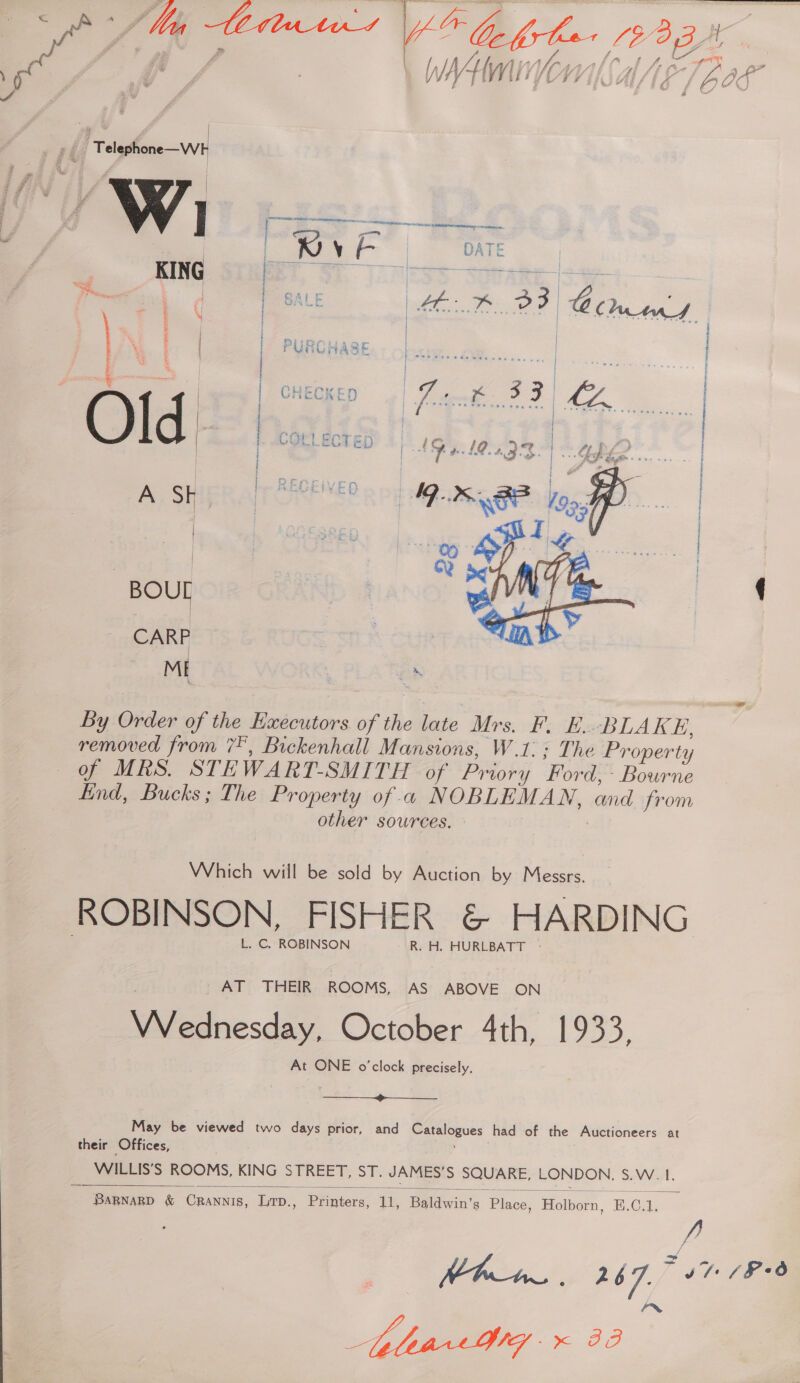 Telephone—WH
WI
RYF DATE
KING
SALE 4. X 33
PURCHASE
CHECKED 7. X 33
Old
COLLECTED 19. 10. 33.
A SH
RECEIVED 19. X. 33
ACCESSED
BOUD
CARP
ME
By Order of the Executors of the late Mrs. F. E. BLAKE,
removed from 7F, Bickenhall Mansions, W.1.; The Property
of MRS. STEWART-SMITH of Priory Ford, Bourne
End, Bucks; The Property of a NOBLEMAN, and from
other sources.
Which will be sold by Auction by Messrs.
ROBINSON, FISHER & HARDING
L. C. ROBINSON R. H. HURLBATT
AT THEIR ROOMS, AS ABOVE ON
Wednesday, October 4th, 1933,
At ONE o'clock precisely.
May be viewed two days prior, and Catalogues had of the Auctioneers at
their Offices,
WILLIS'S ROOMS, KING STREET, ST. JAMES'S SQUARE, LONDON, S.W.1.
BARNARD & CRANNIS, LTD., Printers, 11, Baldwin's Place, Holborn, E.C.1.
267.
x 33